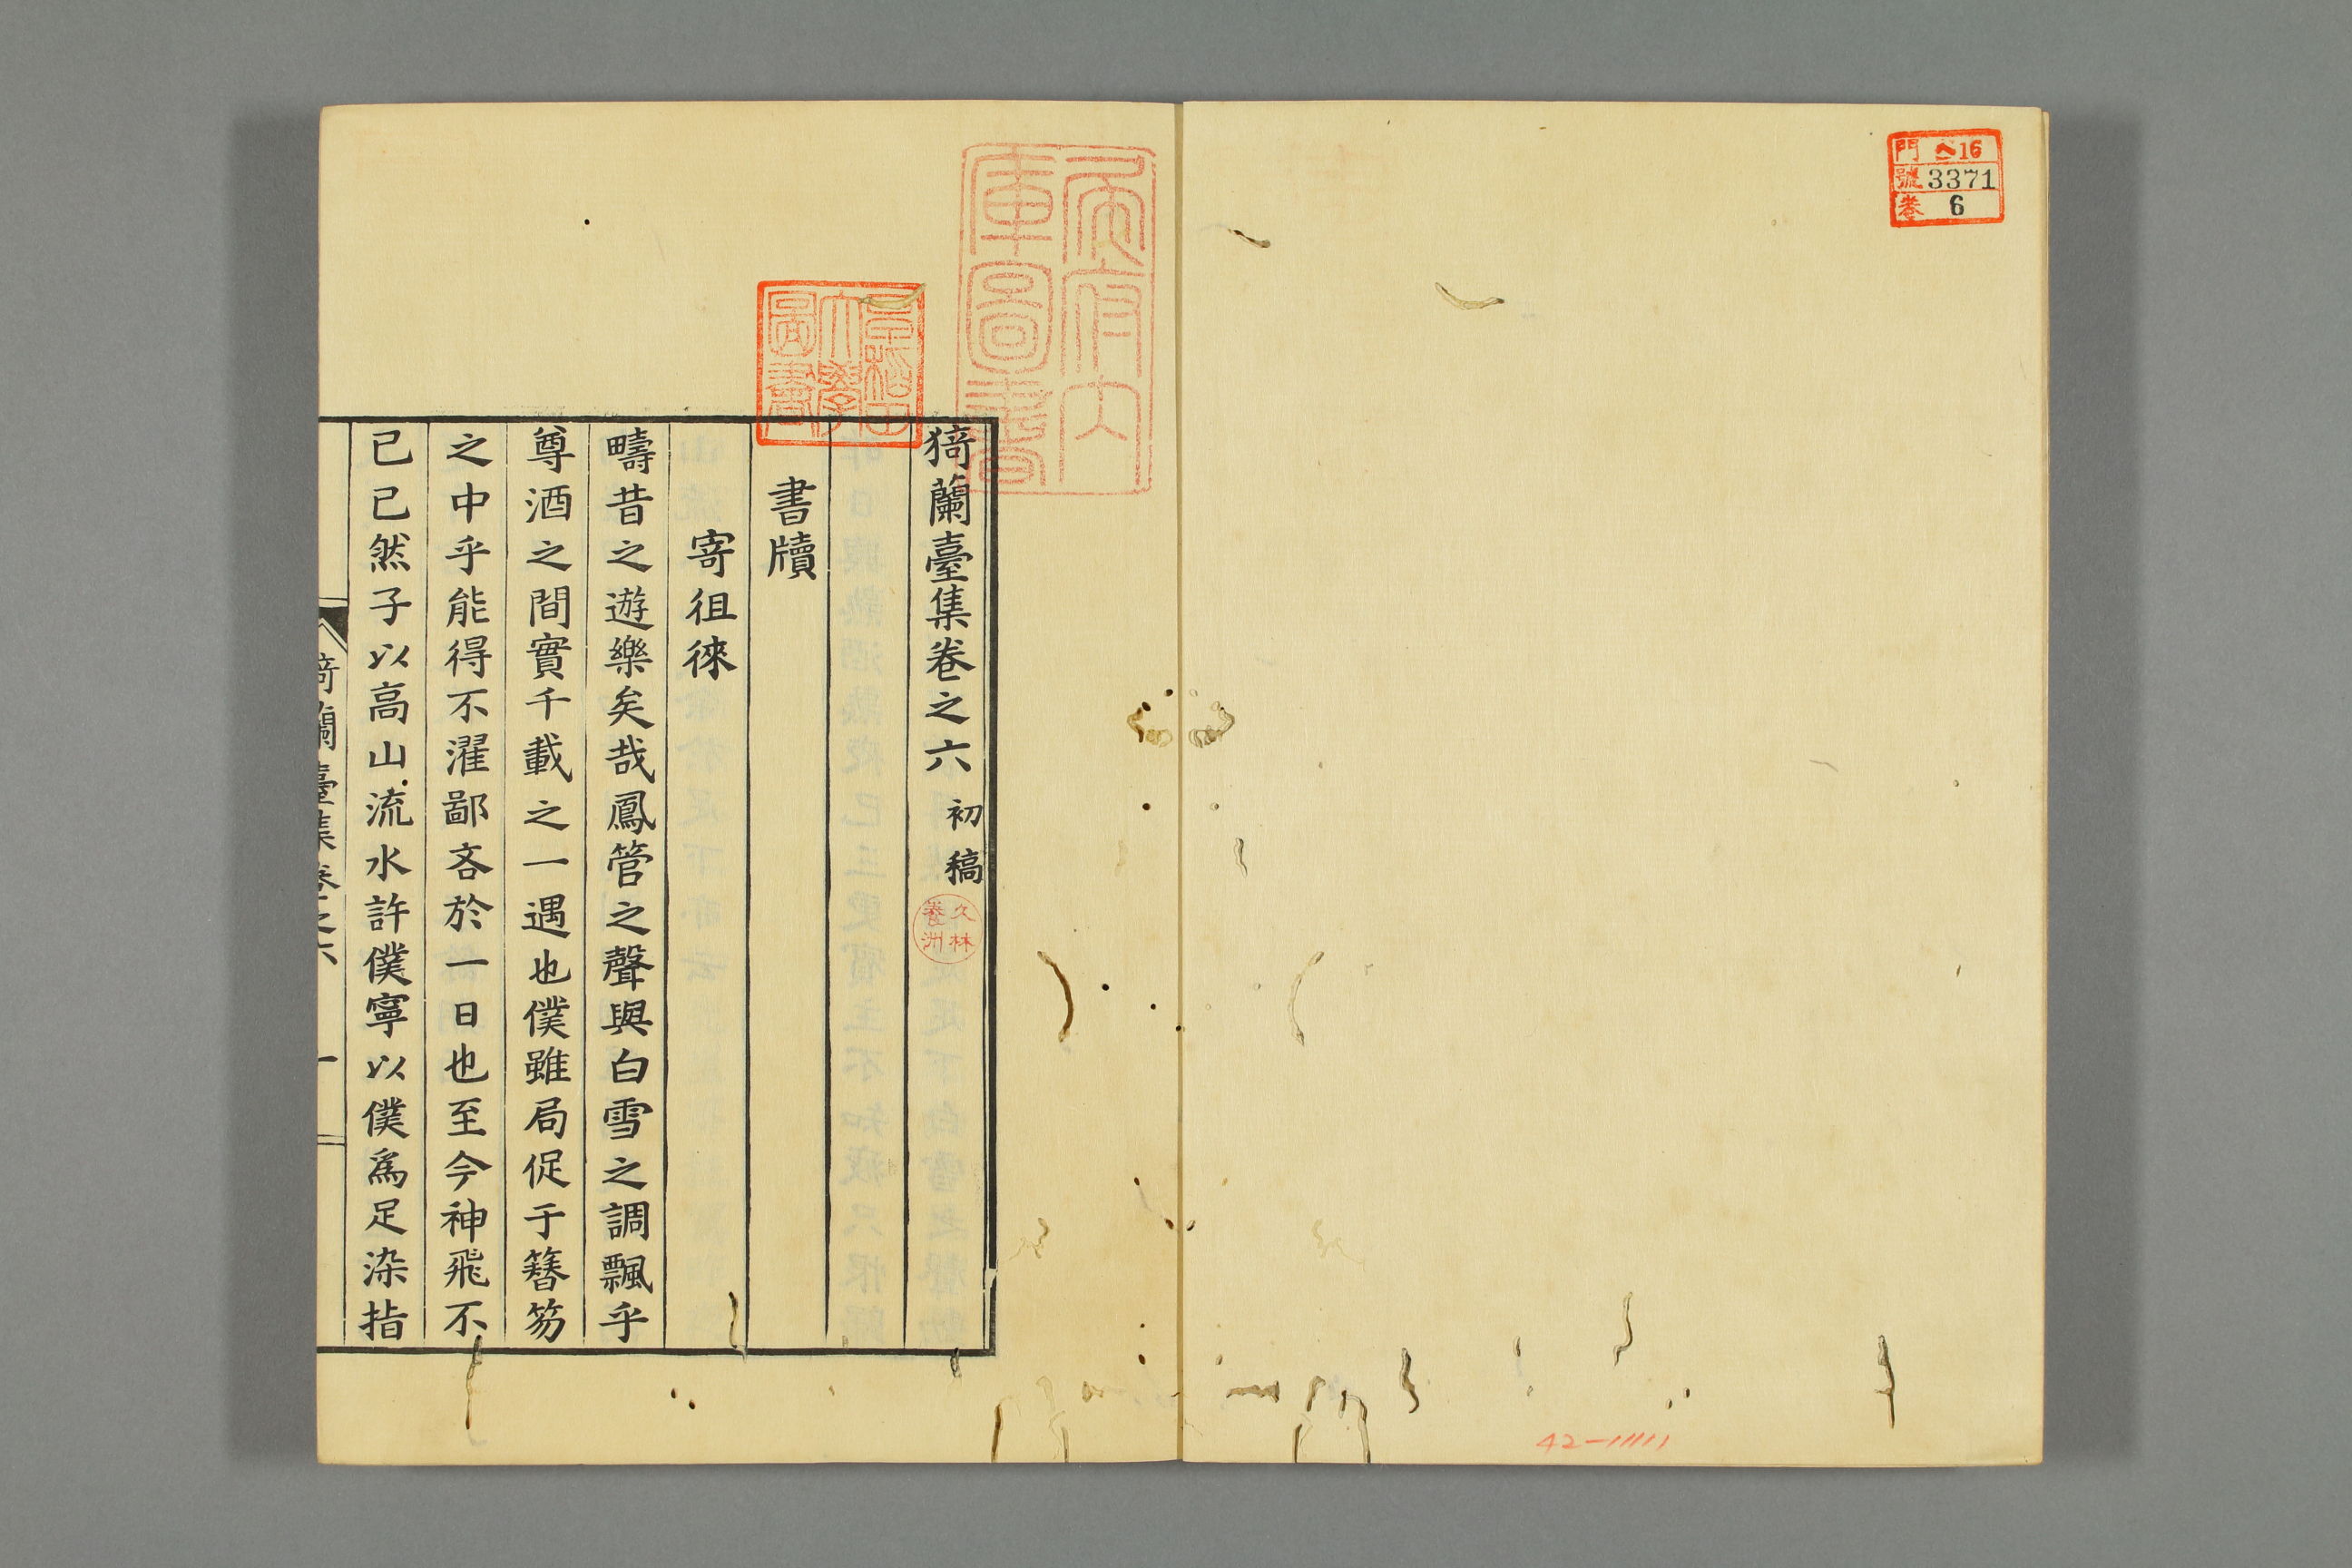 門 ヘ16
號 3371
卷 6
猗蘭臺集卷之六 初稿
久林
養洲
書牘
寄徂徠
疇昔之遊樂矣哉鳳管之聲與白雪之調飄乎
尊酒之間實千載之一遇也僕雖局促于簪笏
之中乎能得不濯鄙吝於一日也至今神飛不
已已然子以高山流水許僕寧以僕爲足染指
猗蘭臺集卷之六 一
早稻田
大學
圖書
42-11111